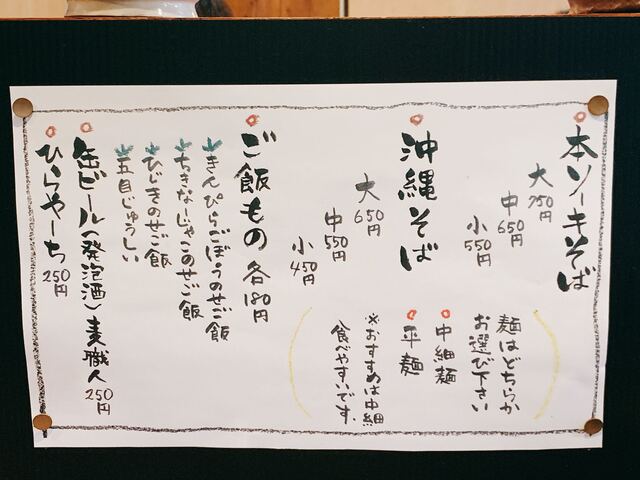 本ソーキそば
大 750円
中 650円
小 550円
麺はどちらか
お選び下さい
中細麺
平麺
※おすすめは中細
食べやすいです。
沖縄そば
大 650円
中 550円
小 450円
ご飯もの 各180円
きんぴらごぼうのせご飯
ちきなーじゃこのせご飯
ひじきのせご飯
五目じゅうしい
缶ビール(発泡酒)麦職人 250円
ひらやーち 250円